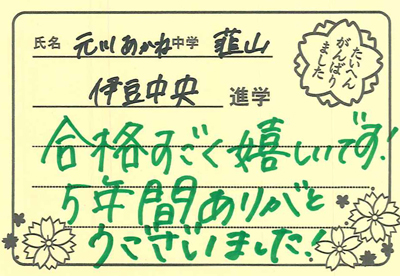 氏名 元川あかね 中学 韮山
伊豆中央 進学
たいへん
がんばり
ました
合格すごく嬉しいです!
5年間ありがと
うございました!